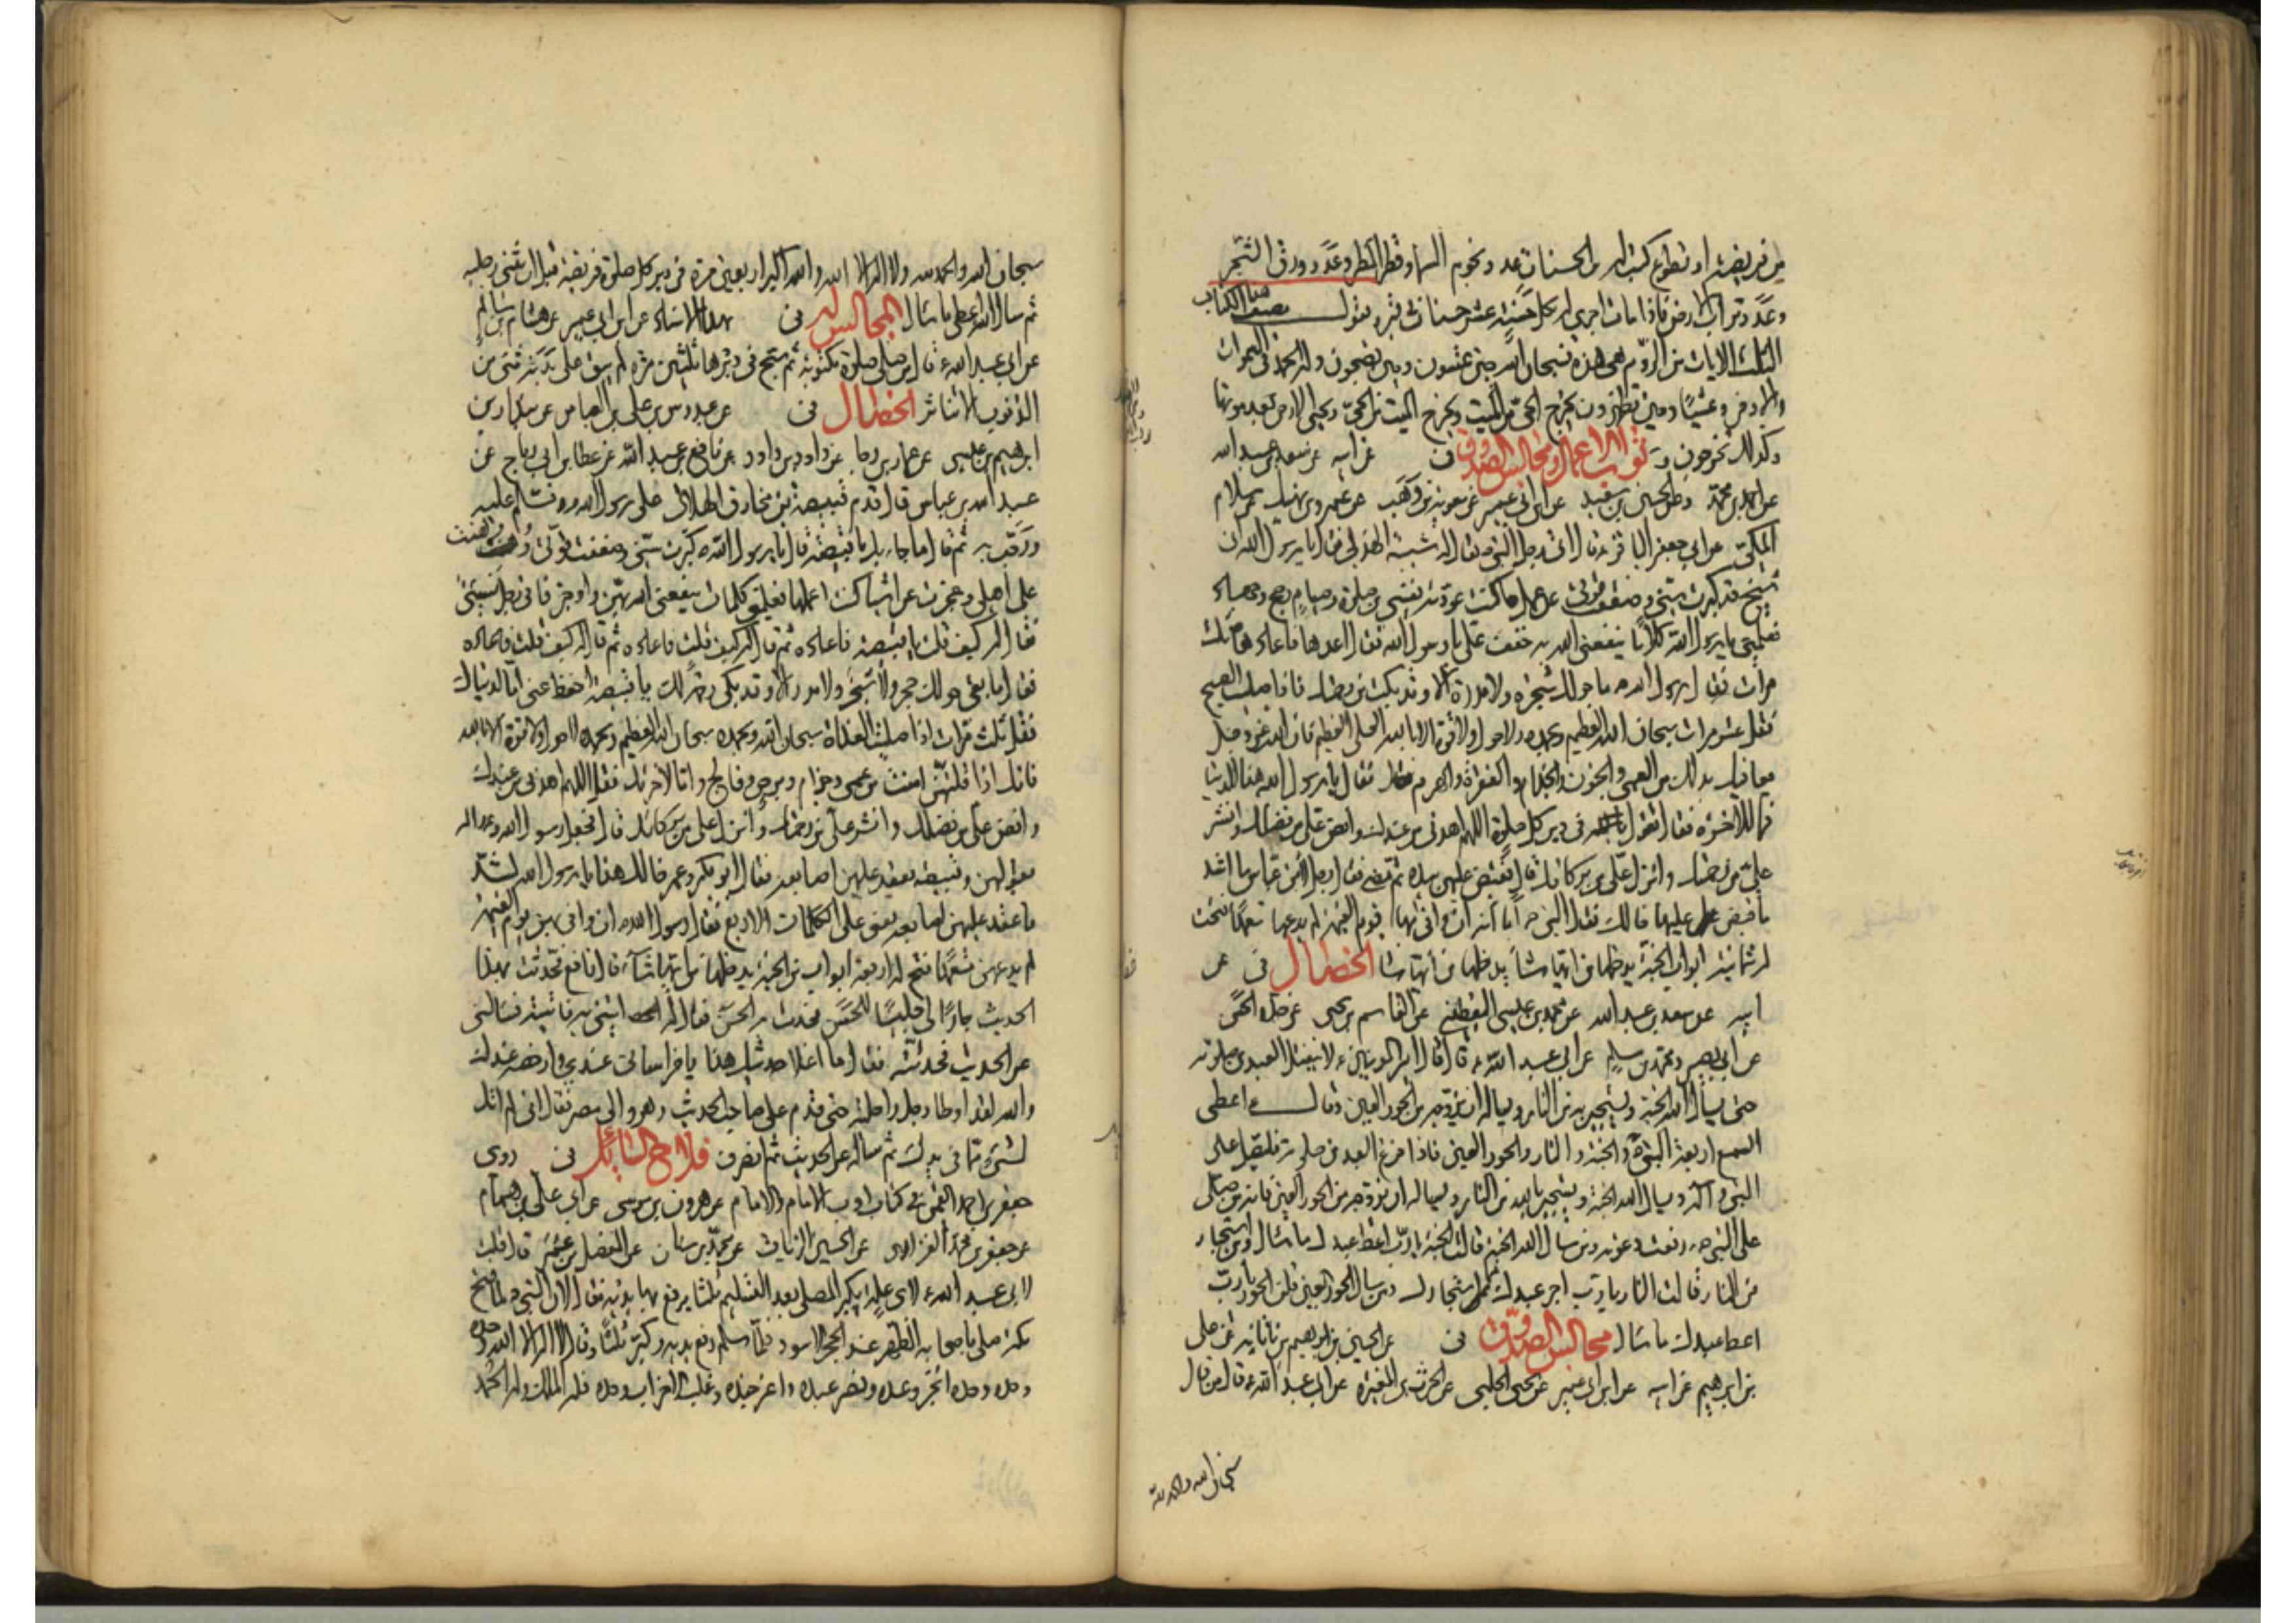 من فريضة او تطوع كتب له من الحسنات عدد نجوم السماء وقطر المطر وعدد ورق الشجر
وعدد تراب الارض فاذا مات اجرى له بكل حسنة عشر حسنات في قبره يقول مصنف هذا الكتاب
الثلث الايات من الروم هي هذه فسبحان الله حين تمسون وحين تصبحون وله الحمد في السموات
والارض وعشيا وحين تظهرون يخرج الحي من الميت ويخرج الميت من الحي ويحيي الارض بعد موتها
وكذلك تخرجون ثواب الاعمال ومجالس الصدوق في عن ابيه عن سعد بن عبد الله
عن احمد بن محمد عن الحسين بن سعيد عن ابن ابي عمير عن معوية بن وهب عن عمرو بن نهيك عن سلام
المكي عن ابي جعفر الباقر ع قال اتى رجل النبي ص يقال له شيبة الهذلي فقال يا رسول الله اني
شيخ قد كبرت سني وضعفت قوتي عن عمل كنت عودته نفسي من صلوة وصيام وحج وجهاد
فعلمني يا رسول الله كلاما ينفعني الله به وخفف علي يا رسول الله فقال اعدها فاعادها ثلث
مرات فقال رسول الله ص ما حولك شجرة ولا مدرة الا وقد بكت من رحمتك فاذا صليت الصبح
فقل عشر مرات سبحان الله العظيم وبحمده ولا حول ولا قوة الا بالله العلي العظيم فان الله عز وجل
يعافيك بذلك من العمى والجنون والجذام والفقر والهرم فقال يا رسول الله هذا للدنيا
فما للاخرة فقال تقول في دبر كل صلوة اللهم اهدني من عندك وافض علي من فضلك وانشر
علي من رحمتك وانزل علي من بركاتك قال فقبض عليهن بيده ثم مضى فقال رجل لابن عباس ما اشد
ما قبض عليها خالك فقال النبي ص اما انه ان وافى بها يوم القيمة لم يدعها متعمدا فتحت
له ثمانية ابواب الجنة يدخلها من ايها شاء الخصال في عن
ابيه عن سعد بن عبد الله عن محمد بن عيسى اليقطيني عن القاسم بن يحيى عن جده الحسن
عن ابي بصير ومحمد بن مسلم عن ابي عبد الله ع قال قال امير المؤمنين ع لا ينفتل العبد من صلوته
حتى يسأل الله الجنة ويستجير به من النار ويساله ان يزوجه من الحور العين وقال ع اعطى
السمع اربعة النبي ص والجنة والنار والحور العين فاذا فرغ العبد من صلوته فليصل على
النبي وآله ويسال الله الجنة ويستجير بالله من النار ويساله ان يزوجه من الحور العين فانه من صلى
على النبي ص رفعت دعوته ومن سال الله الجنة قالت الجنة يا رب اعط عبدك ما سال ومن استجار
من النار قالت النار يا رب اجر عبدك مما استجارك ومن سال الحور العين قلن الحور يا رب
اعط عبدك ما سال مجالس الصدوق في عن الحسين بن ابراهيم بن ناتانه عن علي
بن ابراهيم عن ابيه عن ابن ابي عمير عن يحيى الحلبي عن الحرث بن المغيرة عن ابي عبد الله ع قال من قال
سبحان الله والحمد لله
سبحان الله والحمد لله ولا اله الا الله والله اكبر اربعين مرة في دبر كل صلوة فريضة قبل ان يثني رجليه
ثم سال الله اعطي ما سال المجالس له في بهذا الاسناد عن ابن ابي عمير عن هشام بن سالم
عن ابي عبد الله ع قال من صلى صلوة مكتوبة ثم سبح في دبرها ثلثين مرة لم يبق على بدنه شئ من
الذنوب الا تناثر الخصال في عن عبدوس بن علي بن العباس عن
ابراهيم بن عيسى عن عمار بن رجا عن داود بن داود عن نافع بن عبد الله عن عطا بن ابي رباح عن
عبد الله بن عباس قال قدم قبيصة بن مخارق الهلالي على رسول الله ص فسلم عليه
ورحب به ثم قال ما جاء بك يا قبيصة قال يا رسول الله ص كبرت سني وضعفت قوتي وهنت
على اهلي وعجزت عن اشياء كنت اعملها فعلمني كلمات ينفعني الله بهن واوجز فاني رجل نسي
فقال له كيف قلت يا قبيصة فاعاده ثم قال له كيف قلت فاعاده ثم قال له كيف قلت فاعاده
فقال ما بقي حولك حجر ولا شجر ولا مدر الا وقد بكى رحمة لك يا قبيصة احفظ عني اما لدنياك
فقل ثلث مرات اذا صليت الغداة سبحان الله وبحمده سبحان الله العظيم وبحمده لا حول ولا قوة الا بالله
فانك اذا قلتهن امنت من عمى وجذام وبرص وفالج واما لاخرتك فقل اللهم اهدني من عندك
وافض علي من فضلك وانشر علي من رحمتك وانزل علي من بركاتك قال فجعل رسول الله ص
يقولهن وقبيصة يعقد عليهن اصابعه فقال ابو بكر وعمر خالك هذا يا رسول الله لشد
ما عقد عليهن اصابعه يعني على الكلمات الاربع فقال رسول الله ص ان وافى بهن يوم القيمة
لم يدعهن متعمدا فتح له اربعة ابواب من الجنة يدخلها من ايها شاء قال نافع فحدثت بهذا
الحديث جارا لي جليسا للحسن فحدث به الحسن فقال له ائتني به فاتيته فسالني
عن الحديث فحدثته فقال ما اغلا حديثك هذا يا خراساني عندي وارخصه عندك
والله لقد اوطا رجل راحلته حتى قدم على صاحب الحديث وهو والي مصر فقال اني لم اتك
لشئ مما في يديك ثم ساله عن الحديث ثم انصرف فلاح السائل في روى
جعفر بن احمد القمي في كتاب ادب الامام والماموم عن هرون بن موسى عن ابي علي بن همام
عن جعفر بن محمد الفزاري عن الحسين الزيات عن محمد بن سنان عن المفضل بن عمر قال قلت
لابي عبد الله ع لاي علة يكبر المصلي بعد التسليم ثلثا يرفع بها يديه فقال لان النبي ص لما فتح
مكة صلى باصحابه الظهر عند الحجر الاسود فلما سلم رفع يديه وكبر ثلثا وقال لا اله الا الله وحده
وحده وحده انجز وعده ونصر عبده واعز جنده وغلب الاحزاب وحده فله الملك وله الحمد